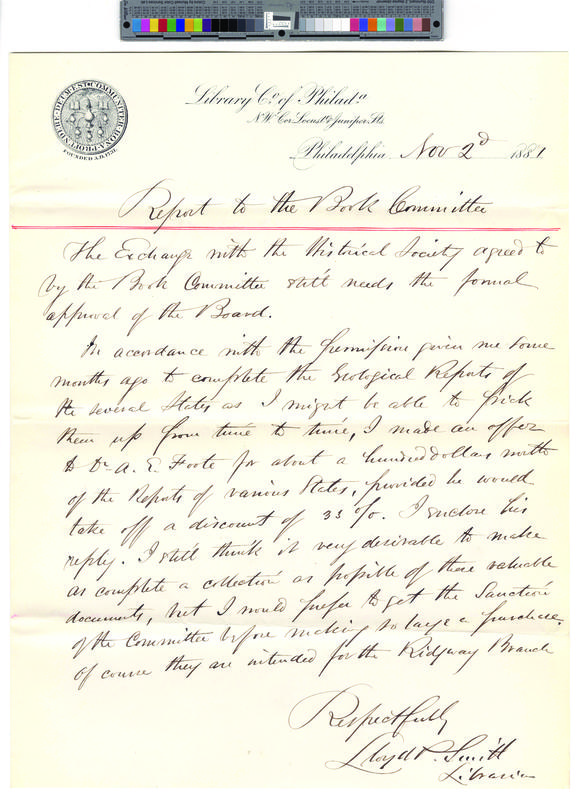 Library Co. of Philada.
N.W. Cor. Locust & Juniper Sts.
Philadelphia Nov 2d 1881
FOUNDED A.D. 1731.
Report to the Book Committee
The Exchange with the Historical Society agreed to
by the Book Committee still needs the formal
approval of the Board.
In accordance with the permission given me some
months ago to complete the Geological Reports of
the several States as I might be able to pick
them up from time to time, I made an offer
to Dr. A. E. Foote for about a hundred dollars worth
of the Reports of various States, provided he would
take off a discount of 33 o/o. I enclose his
reply. I still think it very desirable to make
as complete a collection as possible of these valuable
documents, but I would prefer to get the Sanction
of the Committee before making so large a purchase.
Of course they are intended for the Ridgway Branch
Respectfully
Lloyd P. Smith
Librarian